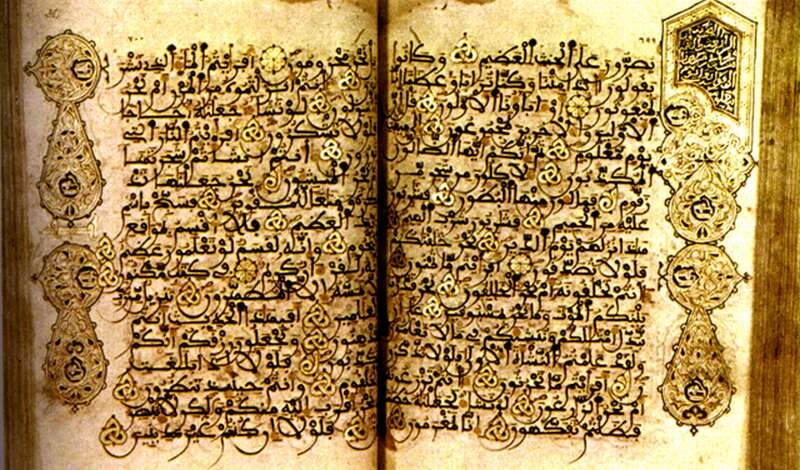 ٦٩٩
يصرون على الحنث العظيم وكانوا
يقولون أئذا متنا وكنا ترابا وعظاما إنا
لمبعوثون أو اباؤنا الأولون قل إن
الأولين والأخرين لمجموعون إلى ميقات
يوم معلوم ثم إنكم أيها الضالون
المكذبون لأكلون من شجر من
زقوم فمالئون منها البطون فشربون
عليه من الحميم فشربون شرب الهيم
هذا نزلهم يوم الدين نحن خلقنكم
فلولا تصدقون أفرأيتم ما تمنون
أأنتم تخلقونه أم نحن الخلقون نحن قدرنا
بينكم الموت وما نحن بمسبوقين على أن
نبدل أمثلكم وننشئكم في ما لا تعلمون
ولقد علمتم النشأة الأولى فلولا تذكرون
أفرأيتم ما تحرثون أأنتم تزرعونه
أم نحن الزرعون لو نشاء لجعلنه حطما
فظلتم تفكهون إنا لمغرمون
٧٠٠
بل نحن محرومون أفرأيتم الماء الذي تشر
بون أأنتم أنزلتموه من المزن أم نحن
المنزلون لو نشاء جعلنه أجاجا
فلولا تشكرون أفرأيتم النار التي
تورون أأنتم أنشأتم شجرتها
أم نحن المنشئون نحن جعلنها تذ
كرة ومتعا للمقوين فسبح باسم
ربك العظيم فلا أقسم بموقع
النجوم وإنه لقسم لو تعلمون عظيم
إنه لقرءان كريم في كتب مكنون
لا يمسه إلا المطهرون تنزيل من ر
ب العلمين أفبهذا الحديث أنتم
مدهنون وتجعلون رزقكم أنكم
تكذبون فلولا إذا بلغت
الحلقوم وأنتم حينئذ تنظرون
ونحن أقرب إليه منكم ولكن لا تبصر
ون فلولا إن كنتم غير مدينين